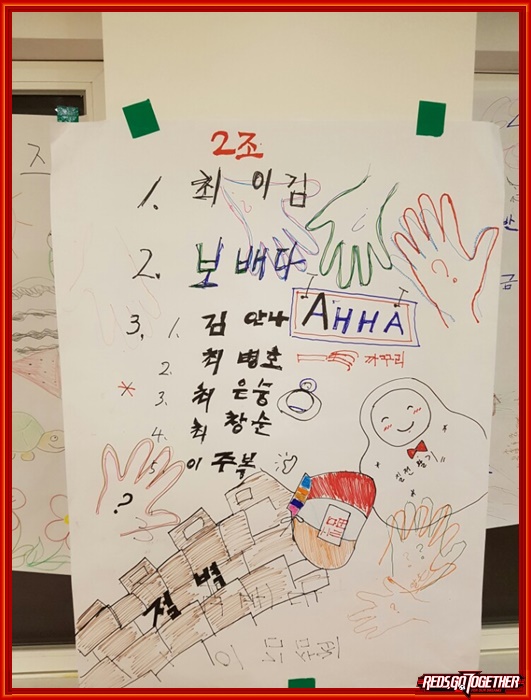 2조
1. 최이김
2. 보배다
AHHA
3. 1. 김안나
2. 최병호
까꾸리
3. 최은숭
4. 최창순
5. 이주복
?
?
칠전팔기
절벽
REDSGOTOGETHER